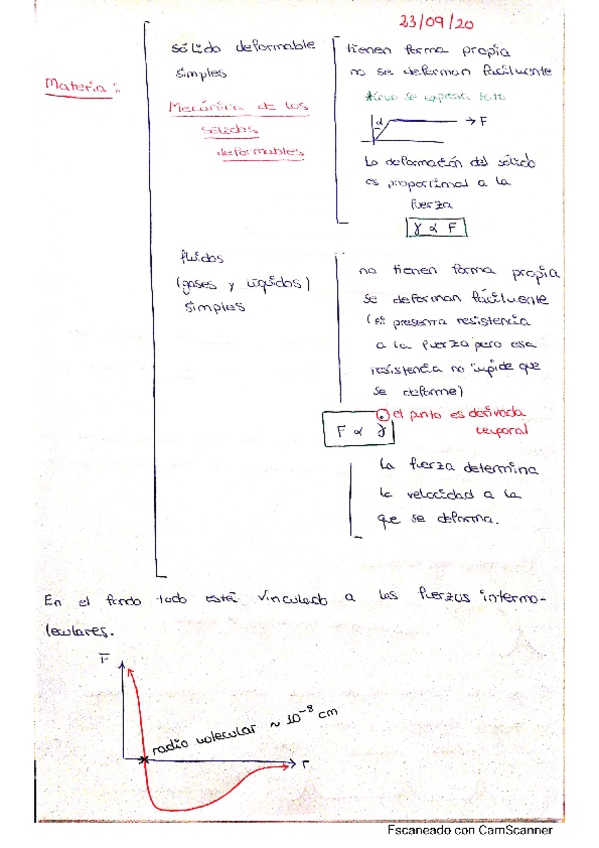 23/09/20
Materia:
sólido deformable
simples
Mecánica de los
sólidos
deformables
tienen forma propia
no se deforman fácilmente
se expresa
α
F
La deformación del sólido
es proporcional a la
fuerza
γ α F
fluidos
(gases y líquidos)
simples
no tienen forma propia
se deforman fácilmente
(sí presenta resistencia
a la fuerza pero esa
resistencia no impide que
se deforme)
F α γ̇
el punto es derivada
temporal
La fuerza determina
la velocidad a la
que se deforma.
En el fondo todo está vinculado a las fuerzas intermo-
leculares.
F
radio molecular ~ 10⁻⁸ cm
r
Escaneado con CamScanner